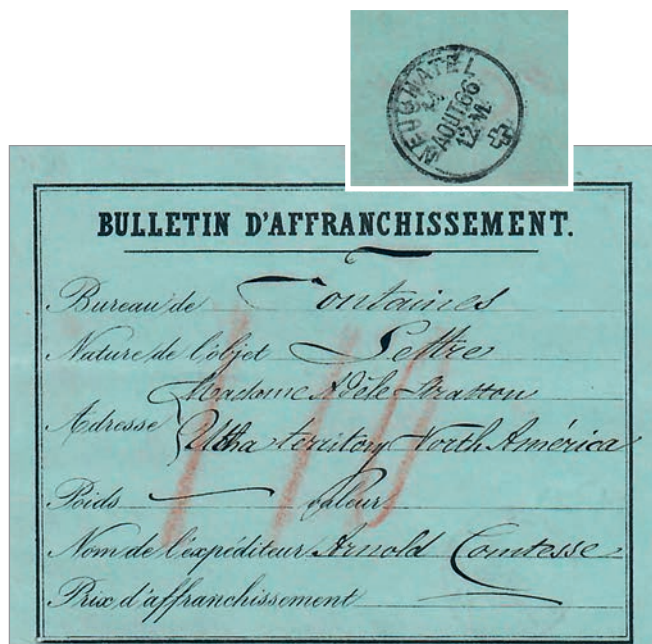 NEUCHATEL
AOUT 66
12 M.
BULLETIN D'AFFRANCHISSEMENT.
Bureau de Fontaines
Nature de l'objet Lettre
Madame Adèle Stratton
Adresse Utha territory North América
Poids valeur
Nom de l'expéditeur Arnold Comtesse
Prix d'affranchissement
110